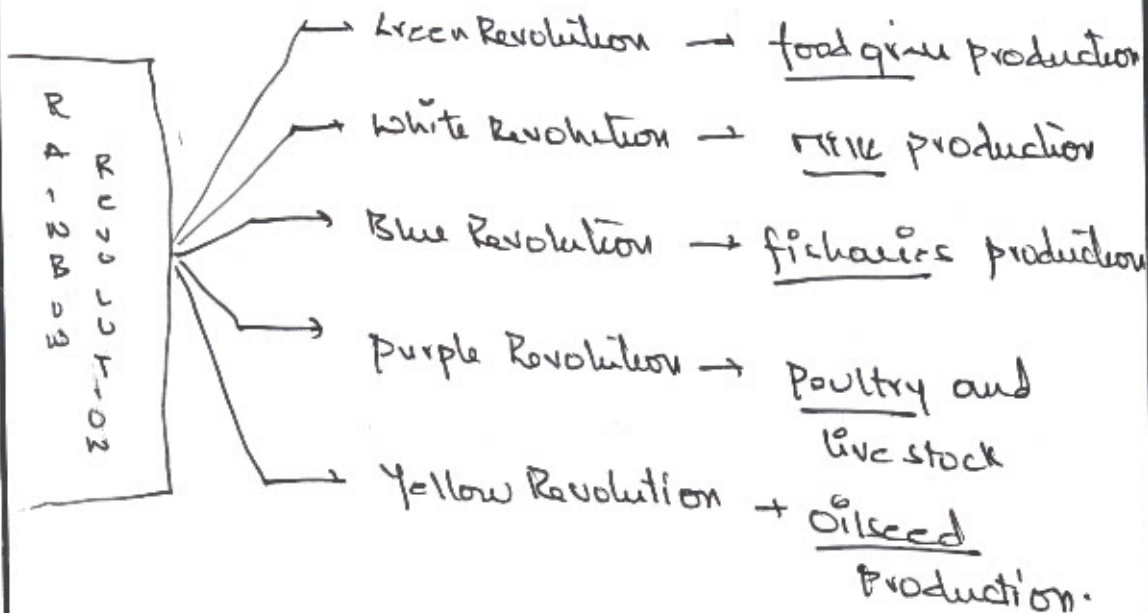 RAINBOW
RevoLUTION
Green Revolution → foodgrain production
White Revolution → Milk production
Blue Revolution → fisharies production
Purple Revolution → Poultry and
live stock
Yellow Revolution → Oilseed
Production.